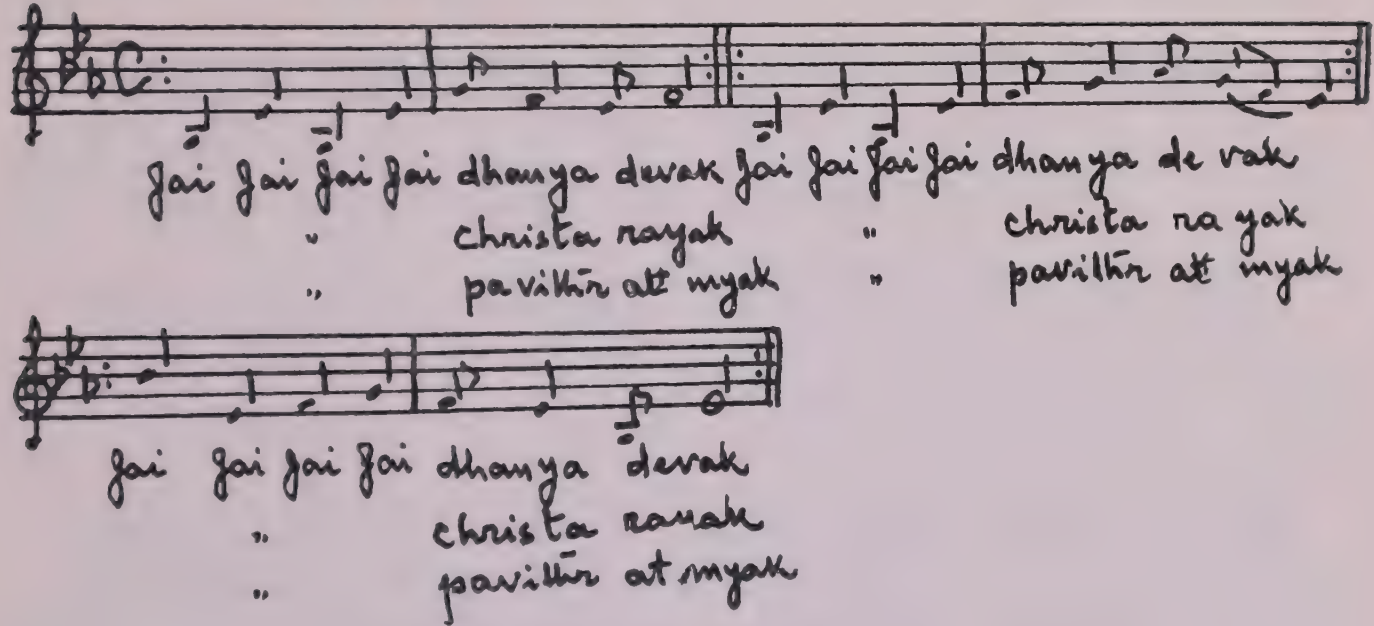 Jai Jai Jai Jai dhanya devak Jai Jai Jai Jai dhanya de vak
" christa rayak " christa ra yak
" pavithr att myak " pavithr att myak
Jai Jai Jai Jai dhanya devak
" christa rayak
" pavithr at myak